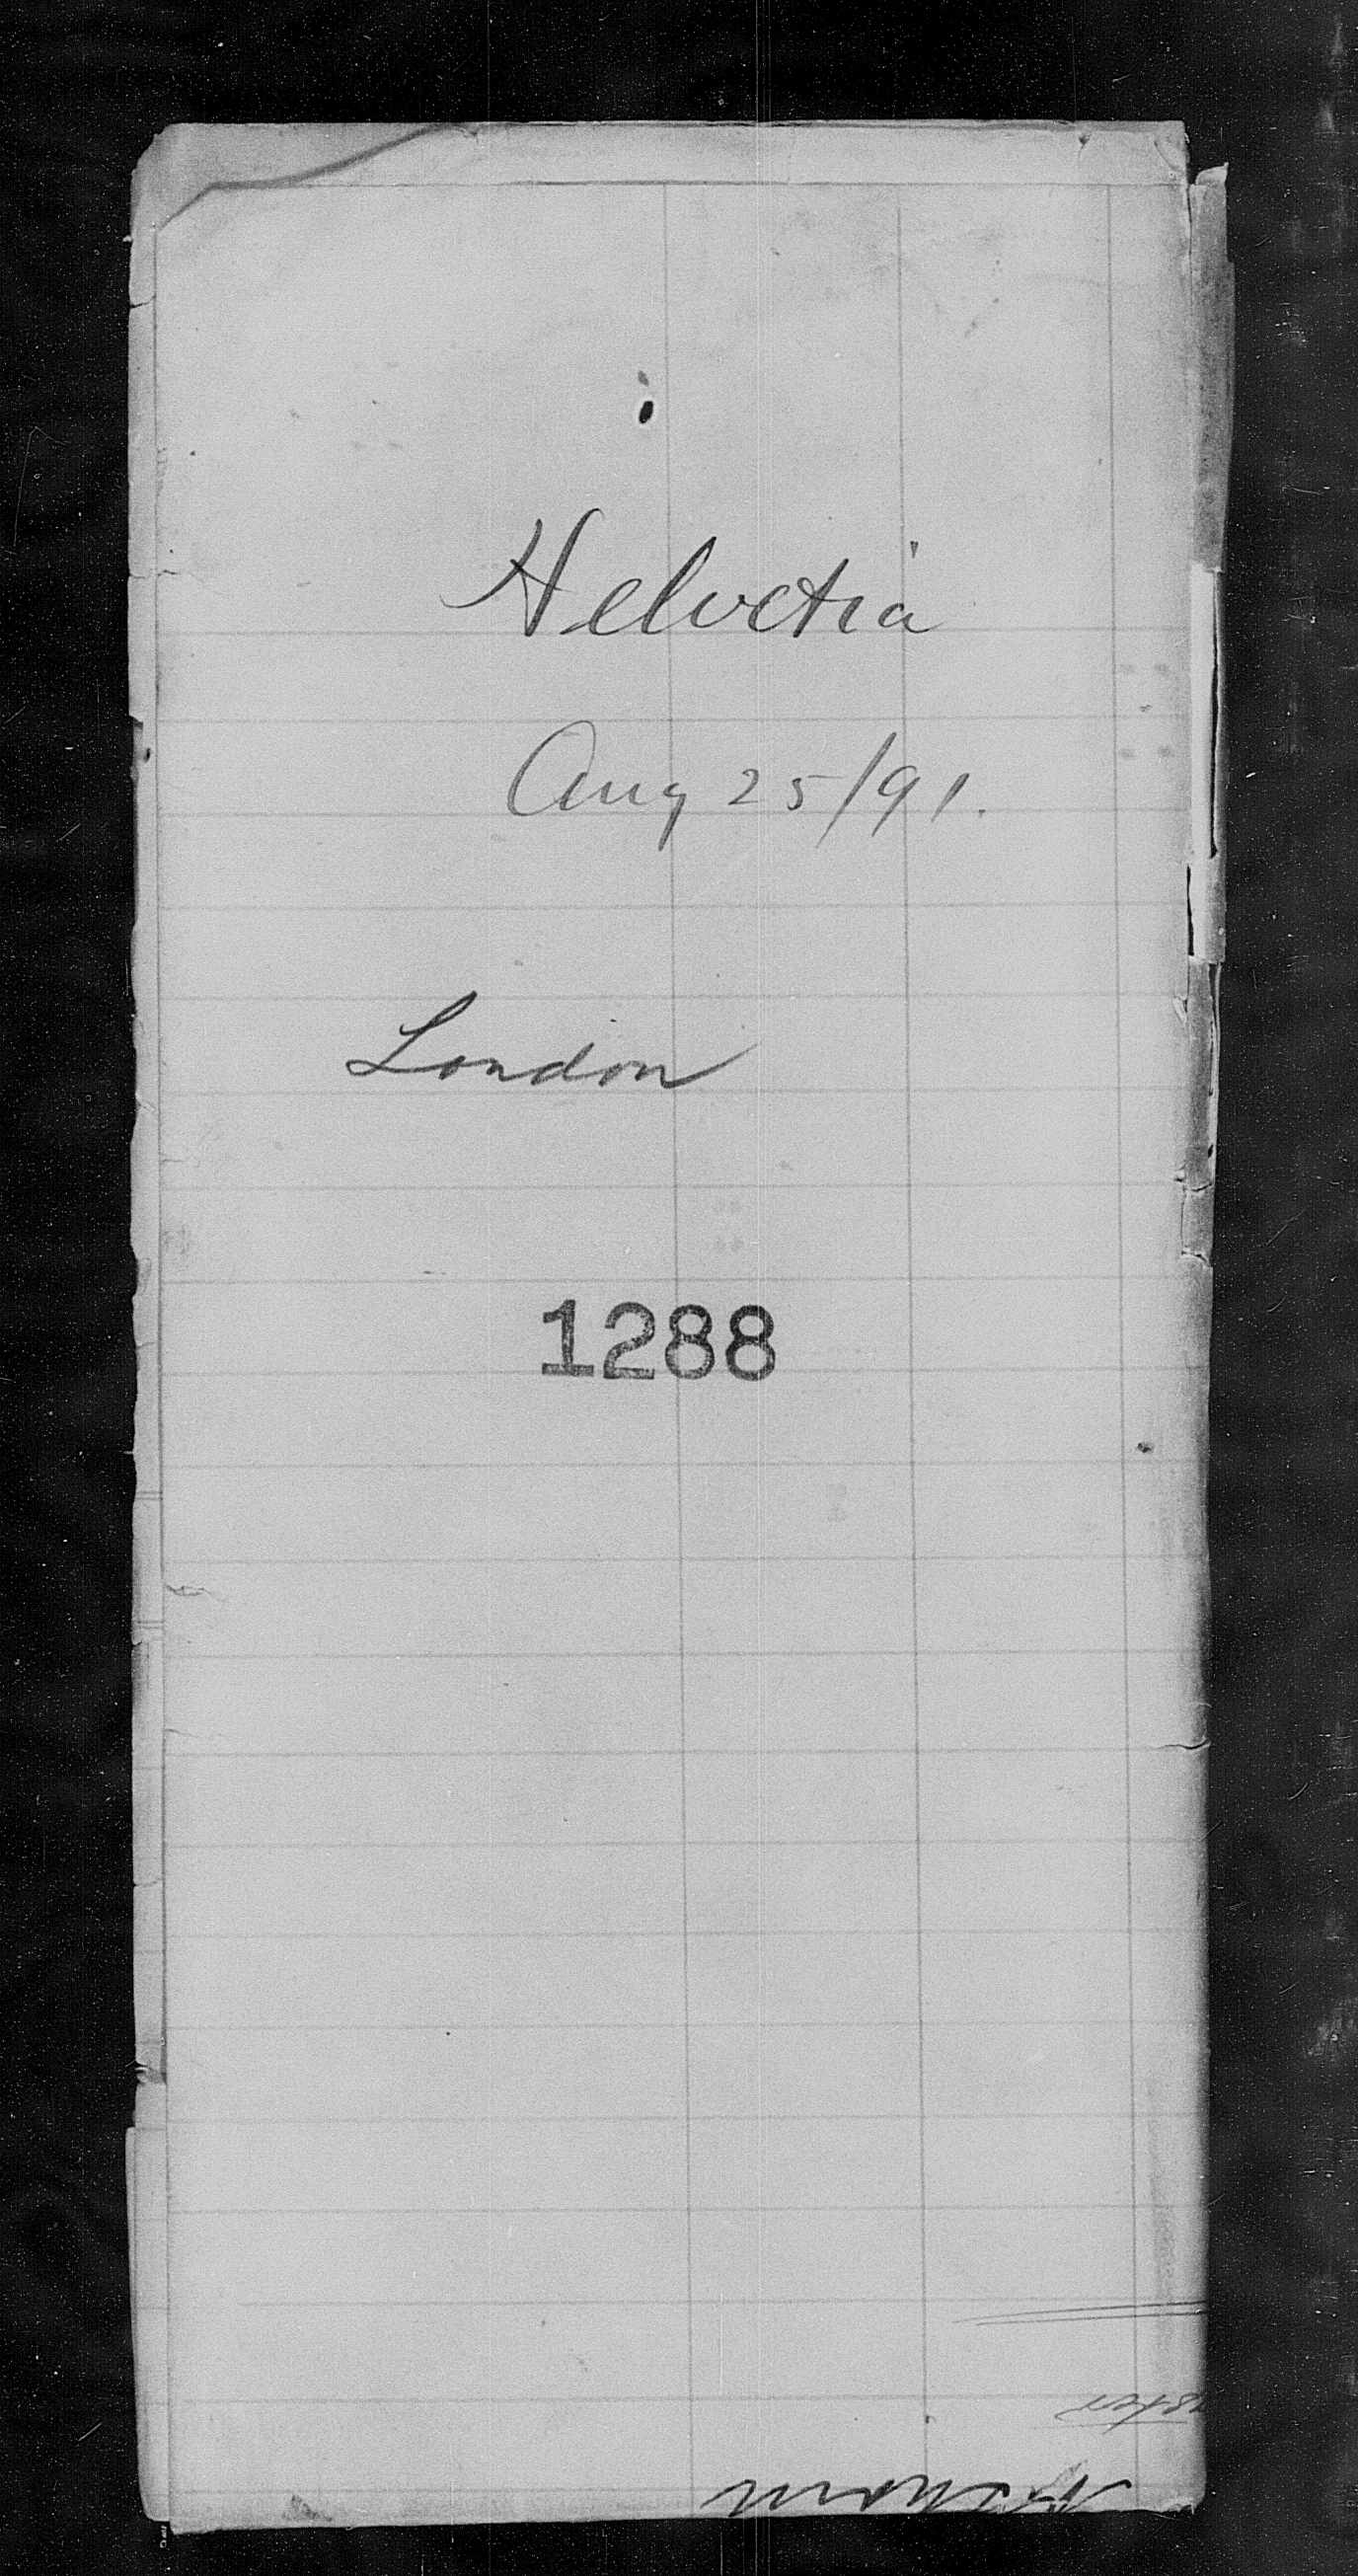 Helvetia
Aug 25/91.
London
1288